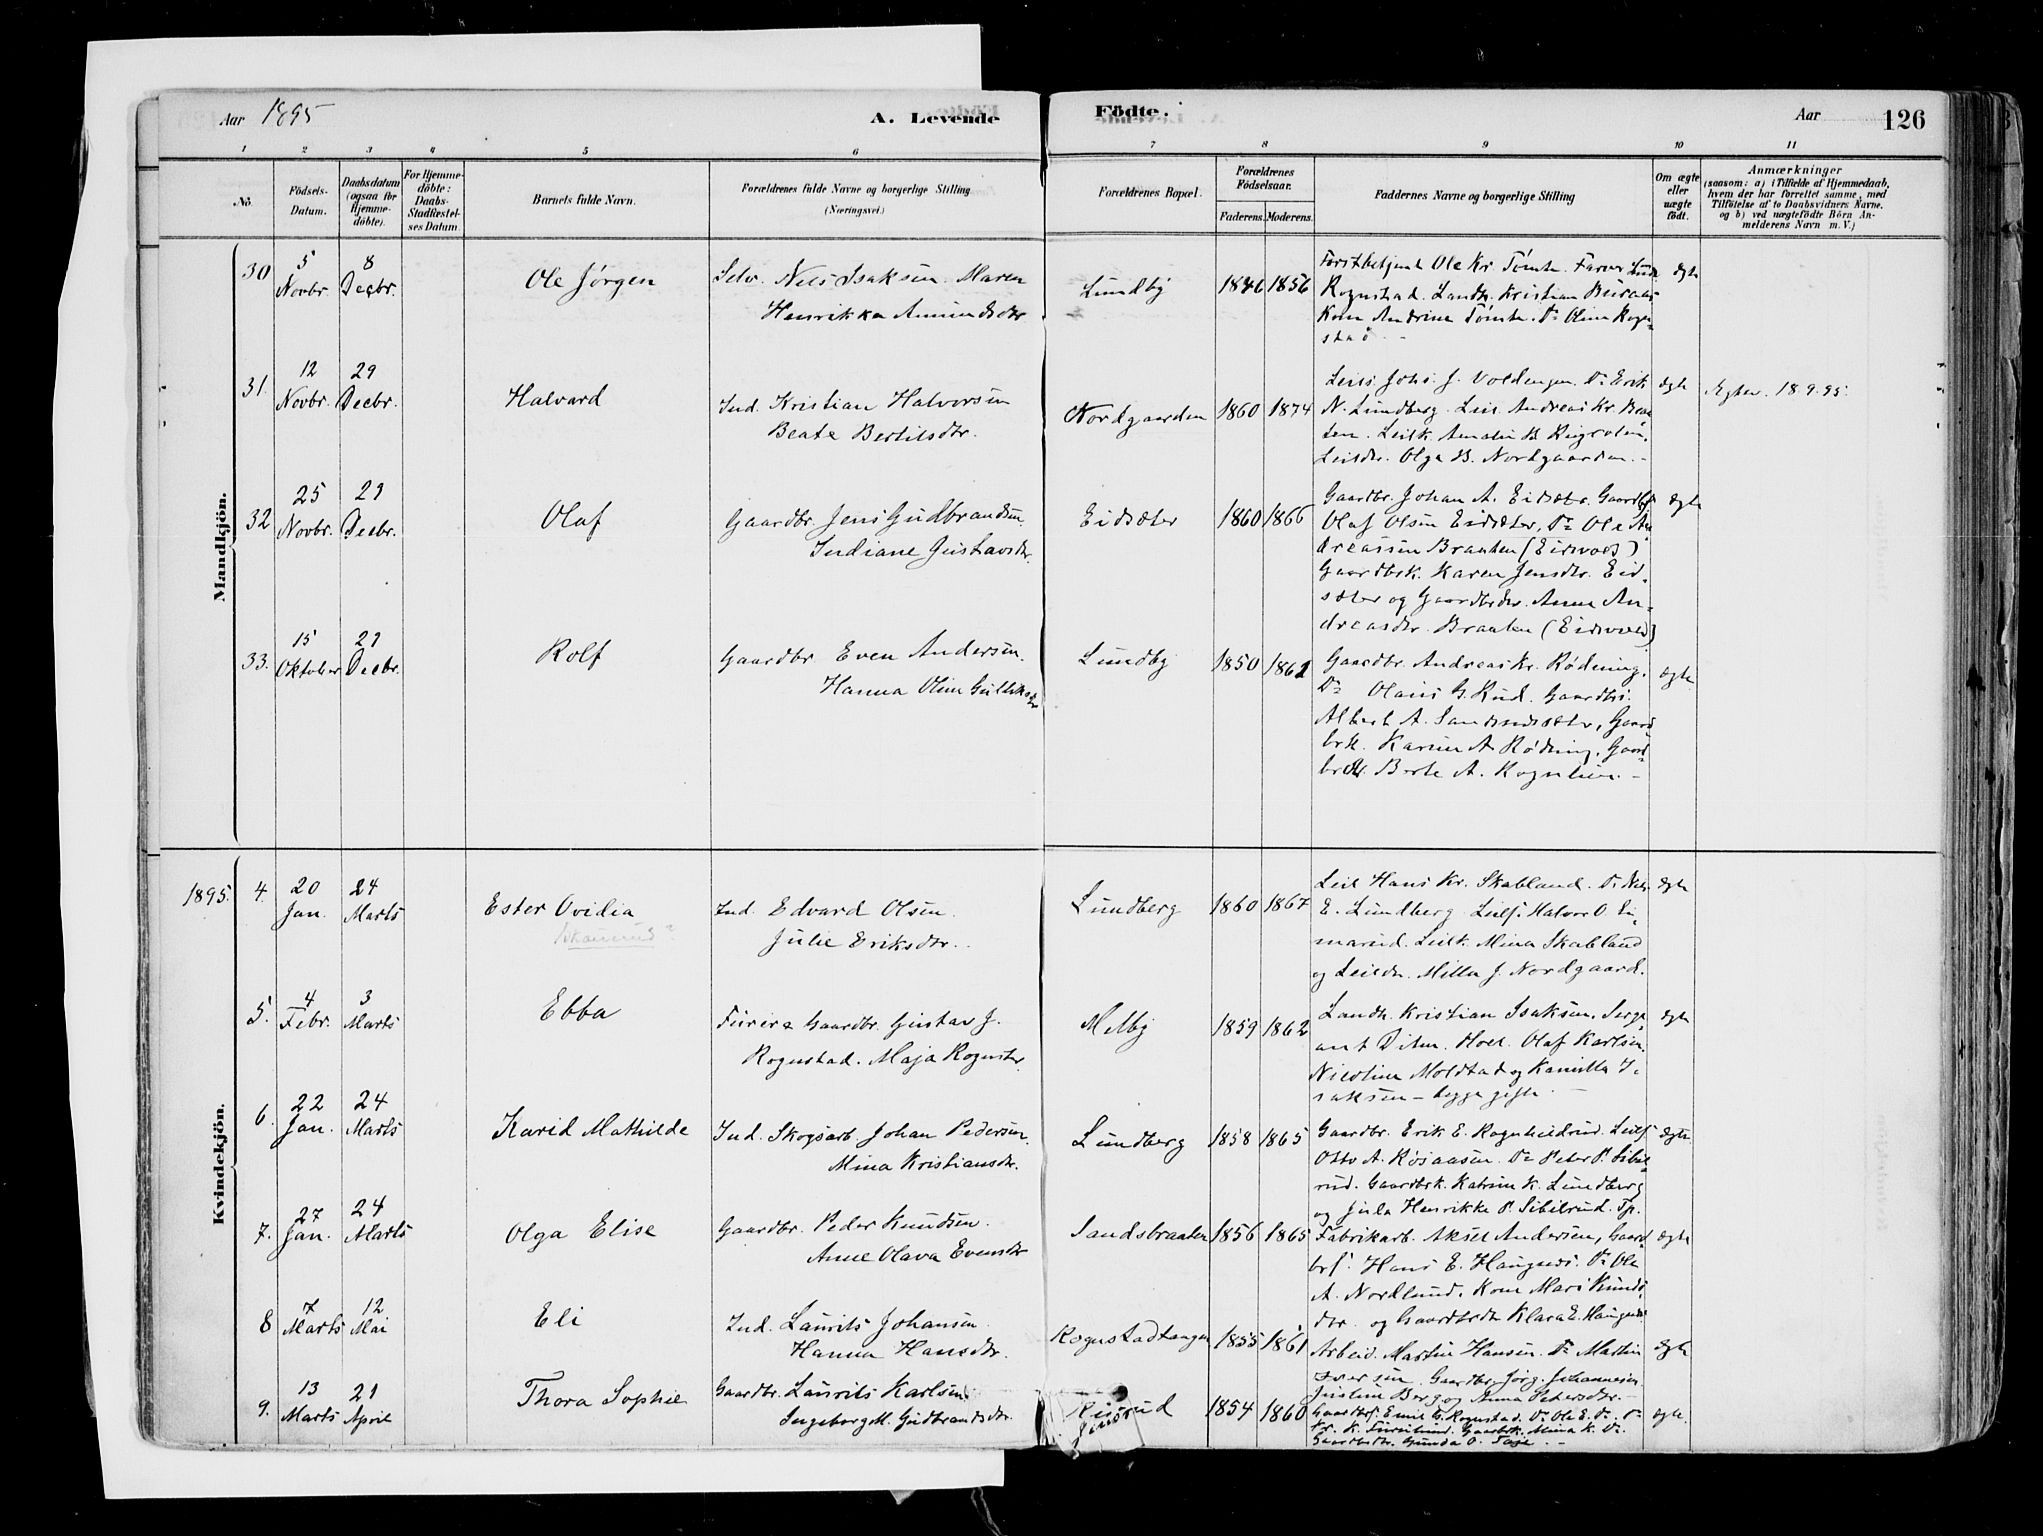 Aar 1895 A. Levende Födte. Aar 126
1 2 3 4 5 6 7 8 9 10 11
No. Födsels-Datum. Daabsdatum (ogsaa for Hjemmedöbte). For Hjemmedöbte: Daabs-Stadfæstelses Datum. Barnets fulde Navn. Forældrenes fulde Navne og borgerlige Stilling (Næringsvei) Forældrenes Bopæl. Forældrenes Födselsaar. Faderens. Moderens. Faddernes Navne og borgerlige Stilling Om ægte eller uægte födt. Anmærkninger (saasom: a) i Tilfælde af Hjemmedaab, hvem der har forrettet samme, med Tilföielse af to Daabsvidners Navne, og b) ved uægtefödte Börn Anmelderens Navn m. V.)
Mandkjön.
30 5 Novbr. 8 Decbr. Ole Jörgen Selv. Nils Isaksen. Maren
Henrikka Amundsdtr Lundby 1846 1856 Forstbetjent Ole Kr. Tömte. Farver
Rognstad. Landh. Kristian
Kone Andrine Tömte. Do Oline Rogn-
stad ægte
31. 12 Novbr. 29 Decbr. Halvard Ind. Kristian Halvorsen
Beate Bertilsdtr. Nordgaarden 1860 1874 Leils. Johs. J. Voldengen. Do Erik
N. Lundberg. Leil. Andreas Kr. Braa-
ten. Leilk. Amalie B.
Leildtr. Olga B. Nordgaarden. ægte Ægtev. 18.9.95.
32 25 Novbr. 29 Decbr. Olaf Gaardbr. Jens Gudbrandsen.
Indiane Gustavsdtr. Eidsæter 1860 1866 Gaardbr. Johan A. Eidsæter. Gaardbr
Olaf Olsen Eidsæter, Do Ole An-
dreassen Braaten (Eidsvold)
Gaardbrk. Karen Jensdtr. Eid-
sæter og Gaardbrdtr. Anne An-
dreasdtr. Braaten (Eidsvold) ægte
33. 15 Oktober 29 Decbr. Rolf Gaardbr Even Andersen.
Hanna Oline Gulliksdtr Lundby 1850 1861 Gaardbr. Andreas Kr. Rödning.
Do Olaus G. Rud. Gaardbrs.
Albert A. Sandsnesæter, Gaard-
brk. Karen A. Rödning, Gaard-
brdtr. Berte A. Rognlien. ægte
Kvindekjön.
1895. 4. 20 Jan. 24 Marts Ester Ovidia Ind. Edvard Olsen.
Julie Eriksdtr. Lundberg 1860 1867 Leil Hans Kr. Skabland. Do
E. Lundberg Leilf. Halvor O. Ei-
marud. Leilk. Mina Skabland
og Leildtr. Milla J. Nordgaard. ægte
5. 4 Febr. 3 Marts Ebba Furer & Gaardbr. Gustav J.
Rognstad. Maja Rognstad Melby 1859 1862 Landh. Kristian Isaksen. Serge-
ant Ditm. Hoel. Olaf Karlsen.
Nicoline Moldstad og Kamilla I-
saksen - begge gifte. ægte
6. 22 Jan. 24 Marts Karid Mathilde Ind. Skogsarb Johan Pedersen.
Mina Kristiansdtr. Lundberg 1858 1865 Gaardbr. Erik E. Rognhildrud. Leilf
Otto A. Rösaasen. Do Peter P. Sibil-
rud. Gaardbrk. Katrine K. Lundberg
og Jula Henrikke P. Sibilrud. Tp. ægte
7. 27 Jan. 24 Marts Olga Elise Gaardbr. Peder Knudsen.
Anne Olava Evensdtr Sandsbraaten 1856 1865 Fabrikarb. Aksel Andersen, Gaard-
brf. Hans E. Haugnæs. Do Ole
A. Nordlund. Kone Mari Knuds-
dtr. og Gaardbrdtr Klara E. Haugnæs ægte
8 7 Marts 12 Mai Eli Ind. Laurits Johansen.
Hanna Hansdtr. Rognstadtangen 1855 1861 Arbeid. Martin Hansen. Do Martin
Iversen. Gaardbr Jörg. Johannesen
Justine Berg og Anna Petersdtr. ægte
9. 13 Marts 21 April Thora Sophie Gaardbr. Laurits Karlsen
Ingeborg M. Gudbrandsdtr. Risrud 1854 1860 Gaardbrf. Emil G. Rognstad. Do Ole E. Do. Do
Kr. K. Gaardbrk. Mina K. Do.
Gaardbrdtr. Gunda O. ægte.